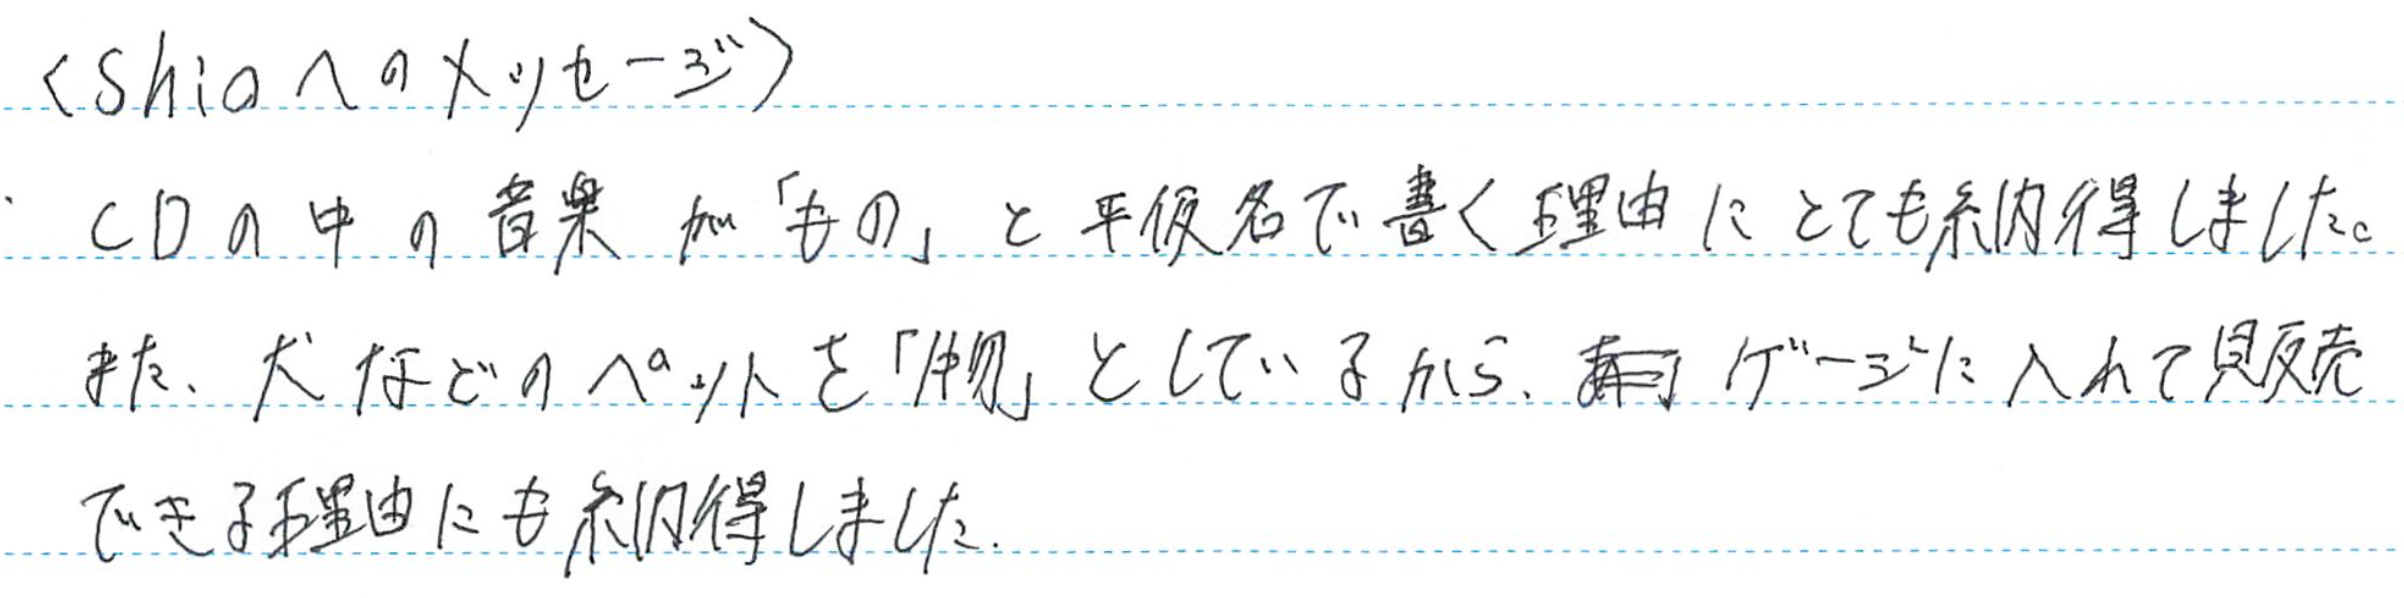 <Shioへのメッセージ>
・CDの中の音楽が「もの」と平仮名で書く理由にとても納得しました。
また、犬などのペットを「物」としているから、ゲージに入れて販売
できる理由にも納得しました.